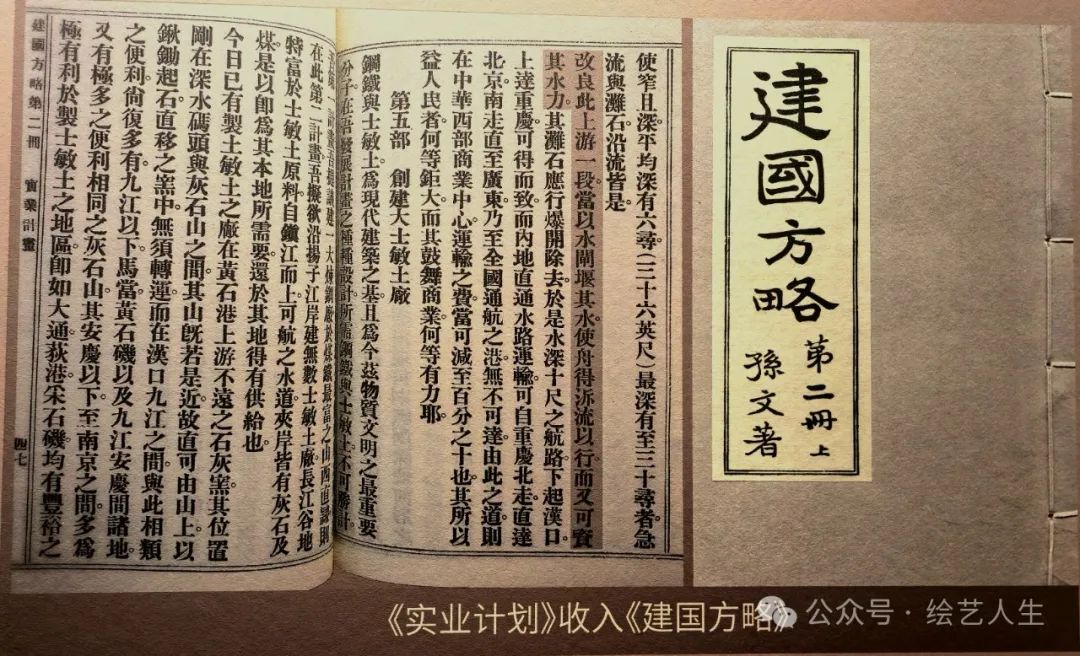 使窄且深。平均深有六尋(三十六英尺)最深有至三十尋者。急
流與灘石沿流皆是。
改良此上游一段當以水閘堰其水使舟得泝流以行而又可資
其水力。其灘石應行爆開除去於是水深十尺之航路下起漢口
上達重慶可得而致而內地直通水路運輸可自重慶北走直達
北京南走直至廣東乃至全國通航之港無不可達由此之道則
在中華西部商業中心運輸之費當可減至百分之十也。其所以
益人民者何等鉅大而其鼓舞商業何等有力耶
第五部　創建大士敏土廠
鋼鐵與士敏土爲現代建築之基且爲今茲物質文明之最重要
分子。在吾發展計畫之種種設計所需鋼鐵與士敏土不可勝計。
在此第二計畫吾擬欲沿揚子江岸建無數士敏土廠長江谷地
特富於士敏土原料自鎭江而上可航之水道夾岸皆有灰石及
煤。是以卽爲其本地所需要還於其地得有供給也。
今日已有製士敏土之廠在黃石港上游不遠之石灰窰其位置
剛在深水碼頭與灰石山之間。其山旣若是近故直可由山上以
鍬鋤起石直移之窰中。無須轉運而在漢口九江之間與此相類
之便利。尚復多有九江以下。馬當黃石磯以及九江安慶間諸地
又有極多之便利相同之灰石山。其安慶以下至南京之間。多爲
極有利於製士敏土之地區。卽如大通荻港采石磯均有豐裕之
建國方略第二冊　實業計畫
四七
建國方略
第二冊上
孫文著
《实业计划》收入《建国方略》
公众号·绘艺人生